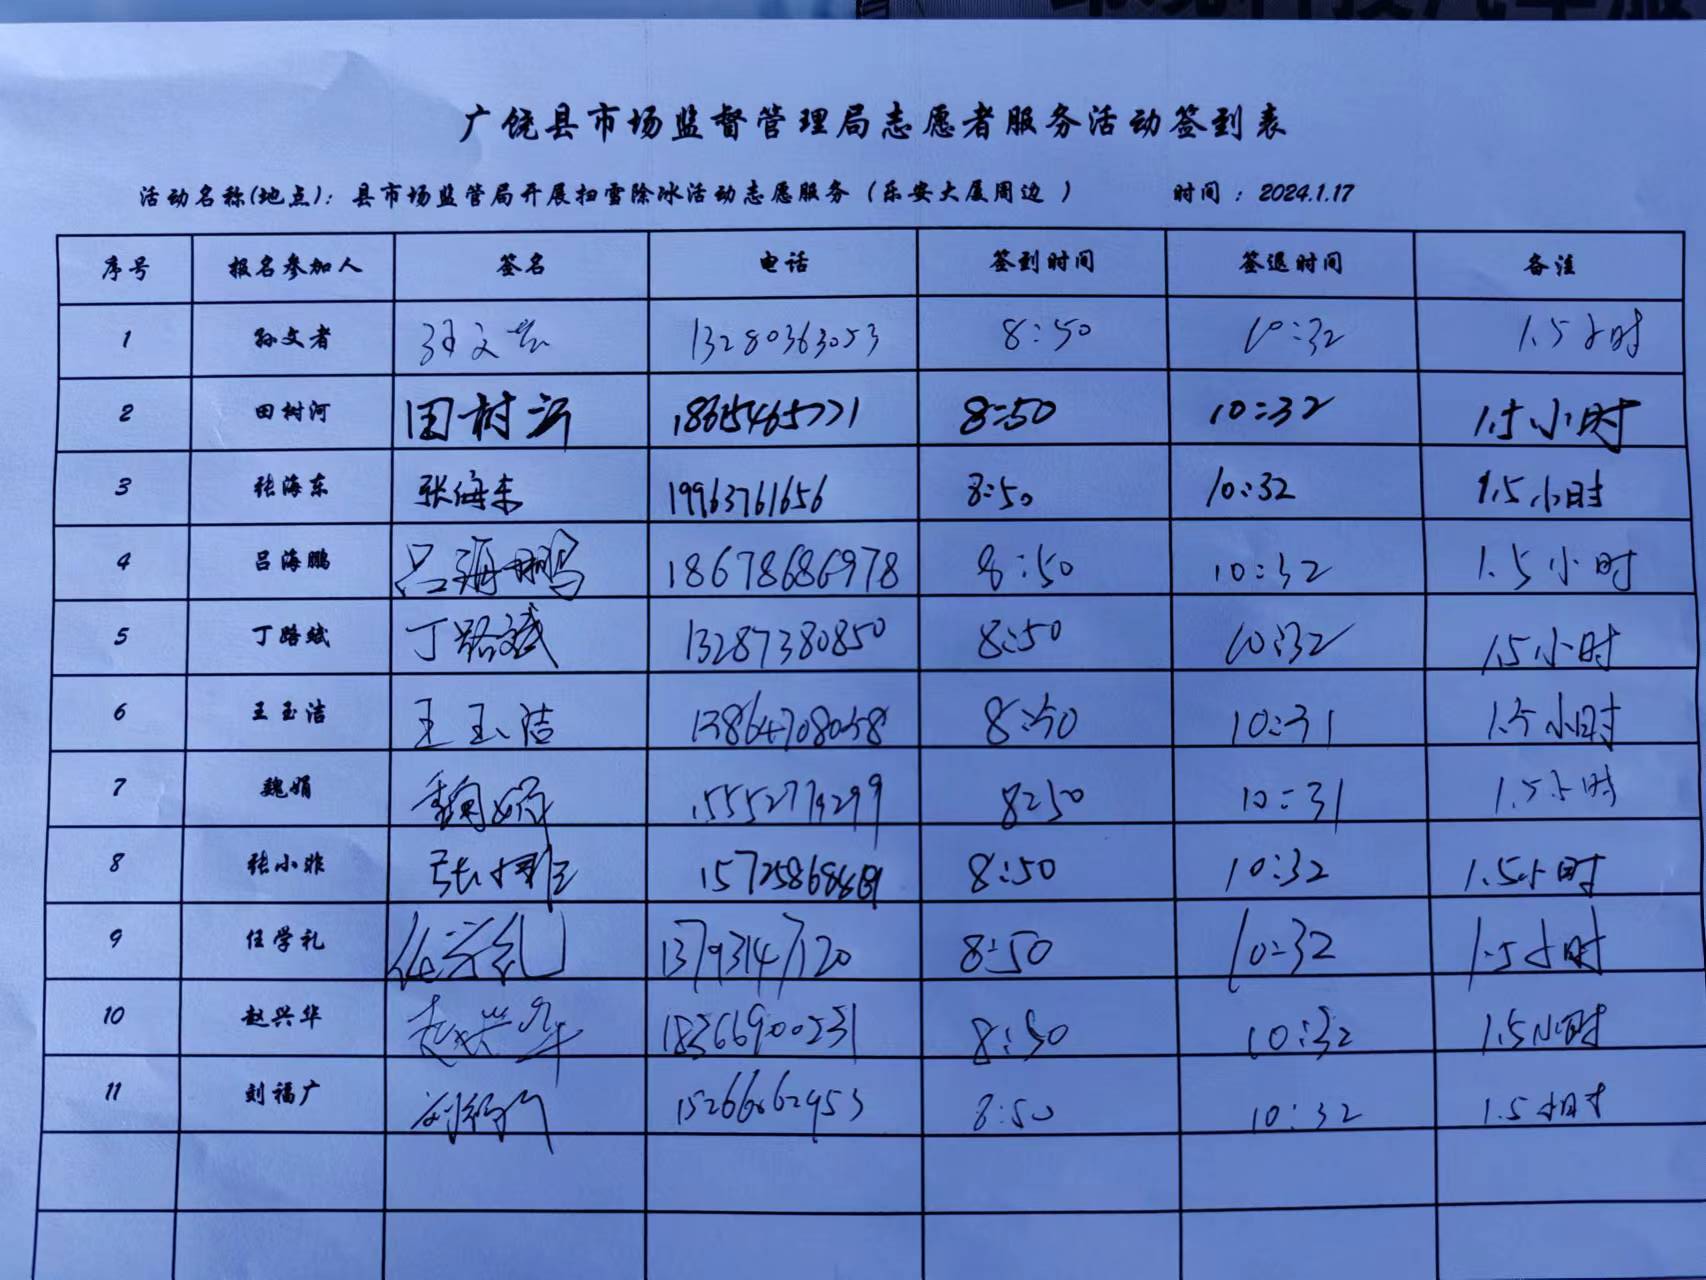 广饶县市场监督管理局志愿者服务活动签到表
活动名称(地点)：县市场监管局开展扫雪除冰活动志愿服务（乐安大厦周边 ） 时间 ：2024.1.17
序号 报名参加人 签名 电话 签到时间 签退时间 备注
1 孙文者 孙文者 13280363053 8:50 10:32 1.5小时
2 田树河 田树河 18615465771 8:50 10:32 1.5小时
3 张海东 张海东 19963761656 8:50 10:32 1.5小时
4 吕海鹏 吕海鹏 18678686978 8:50 10:32 1.5小时
5 丁路斌 丁路斌 13287380850 8:50 10:32 1.5小时
6 王玉洁 王玉洁 13864708058 8:50 10:31 1.5小时
7 魏娟 魏娟 15552779299 8:50 10:31 1.5小时
8 张小非 8:50 10:32 1.5小时
9 任学礼 任学礼 13793147120 8:50 10:32 1.5小时
10 赵兴华 赵兴华 18266900231 8:50 10:32 1.5小时
11 刘福广 刘福广 15266662953 8:50 10:32 1.5小时